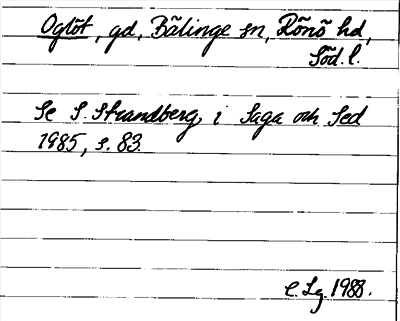 Oglöt, gd, Bälinge sn, Rönö hd,
Söd. l.
Se S. Strandberg, i Saga och Sed
1985, s. 83.
C. Lg. 1988.